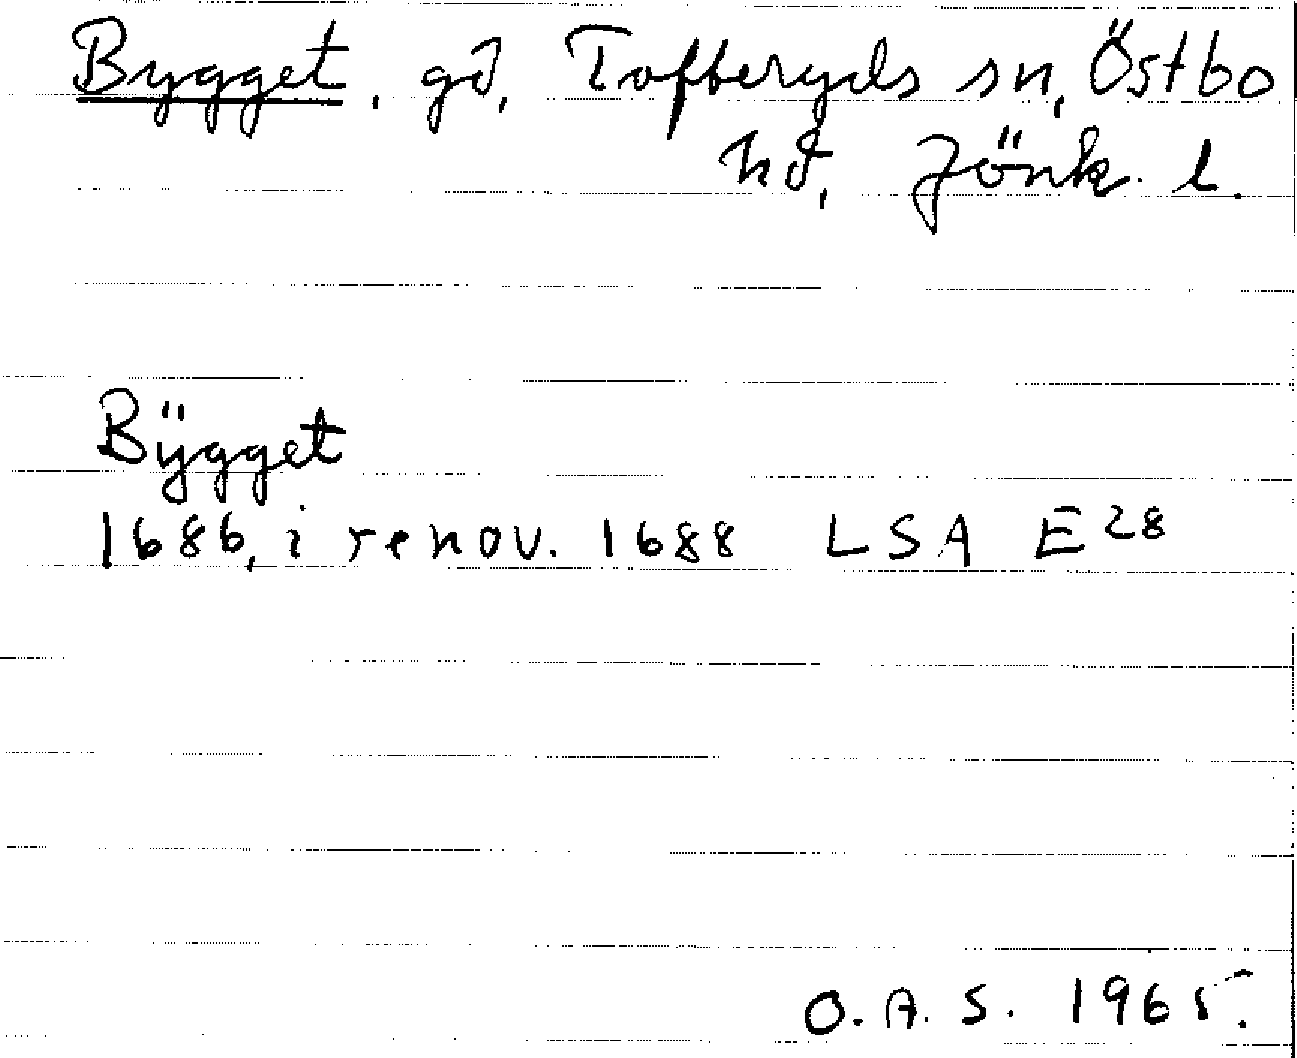 Bygget, gd, Tofteryds sn, Östbo
hd, Jönk. l.
Bÿgget
1686, i renov. 1688 LSA E28
O.A.S. 1965.